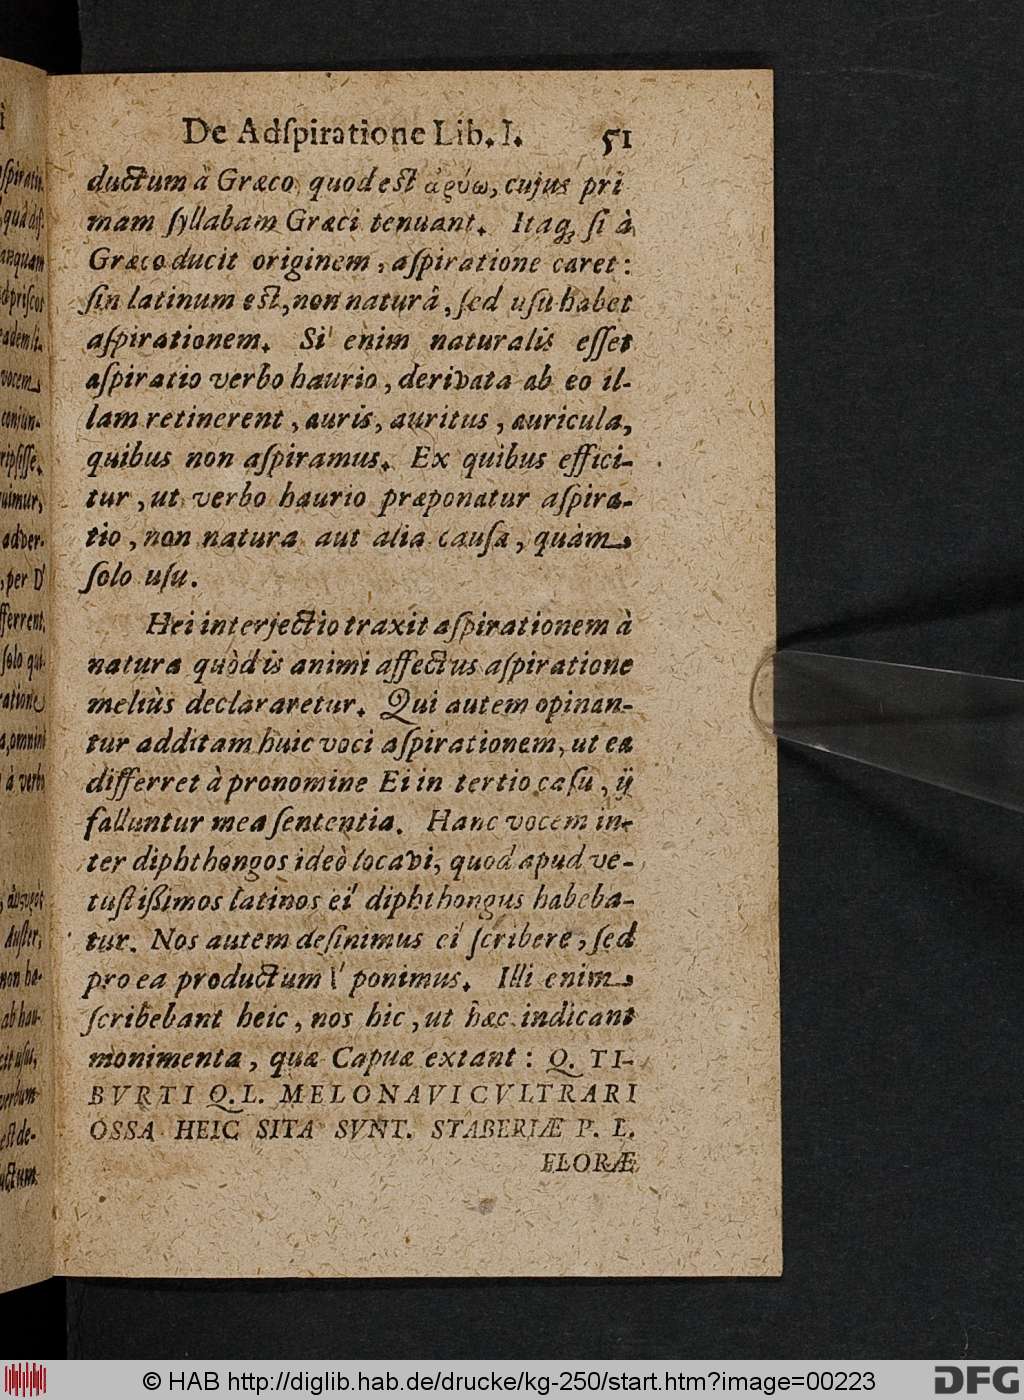 De Adſpiratione Lib. I. 51
ductum à Græco quod est ἀρύω, cujus pri
mam ſyllabam Græci tenuant. Itaq; ſi à
Græco ducit originem, aſpiratione caret:
ſin latinum est, non naturâ, ſed uſu habet
aſpirationem. Si enim naturalis eſſet
aſpiratio verbo haurio, derivata ab eo il-
lam retinerent, auris, auritus, auricula,
quibus non aſpiramus. Ex quibus effici-
tur, ut verbo haurio præponatur aſpira-
tio, non natura aut alia cauſa, quàm
ſolo uſu.
Hei interjectio traxit aſpirationem à
natura quòd is animi affectus aſpiratione
meliùs declararetur. Qui autem opinan-
tur additam huic voci aſpirationem, ut ea
differret à pronomine Ei in tertio caſu, ij
falluntur mea ſententia. Hanc vocem in-
ter diphthongos ideò locavi, quod apud ve-
tuſtißimos latinos ei diphthongus habeba-
tur. Nos autem deſinimus ei ſcribere, ſed
pro ea productum I ponimus. Illi enim
ſcribebant heic, nos hic, ut hæc indicant
monimenta, quæ Capuæ extant: Q. TI-
BVRTI Q. L. MELONAVICVLTRARI
OSSA HEIC SITA SVNT. STABERIÆ P. L.
FLORÆ
© HAB http://diglib.hab.de/drucke/kg-250/start.htm?image=00223
DFG